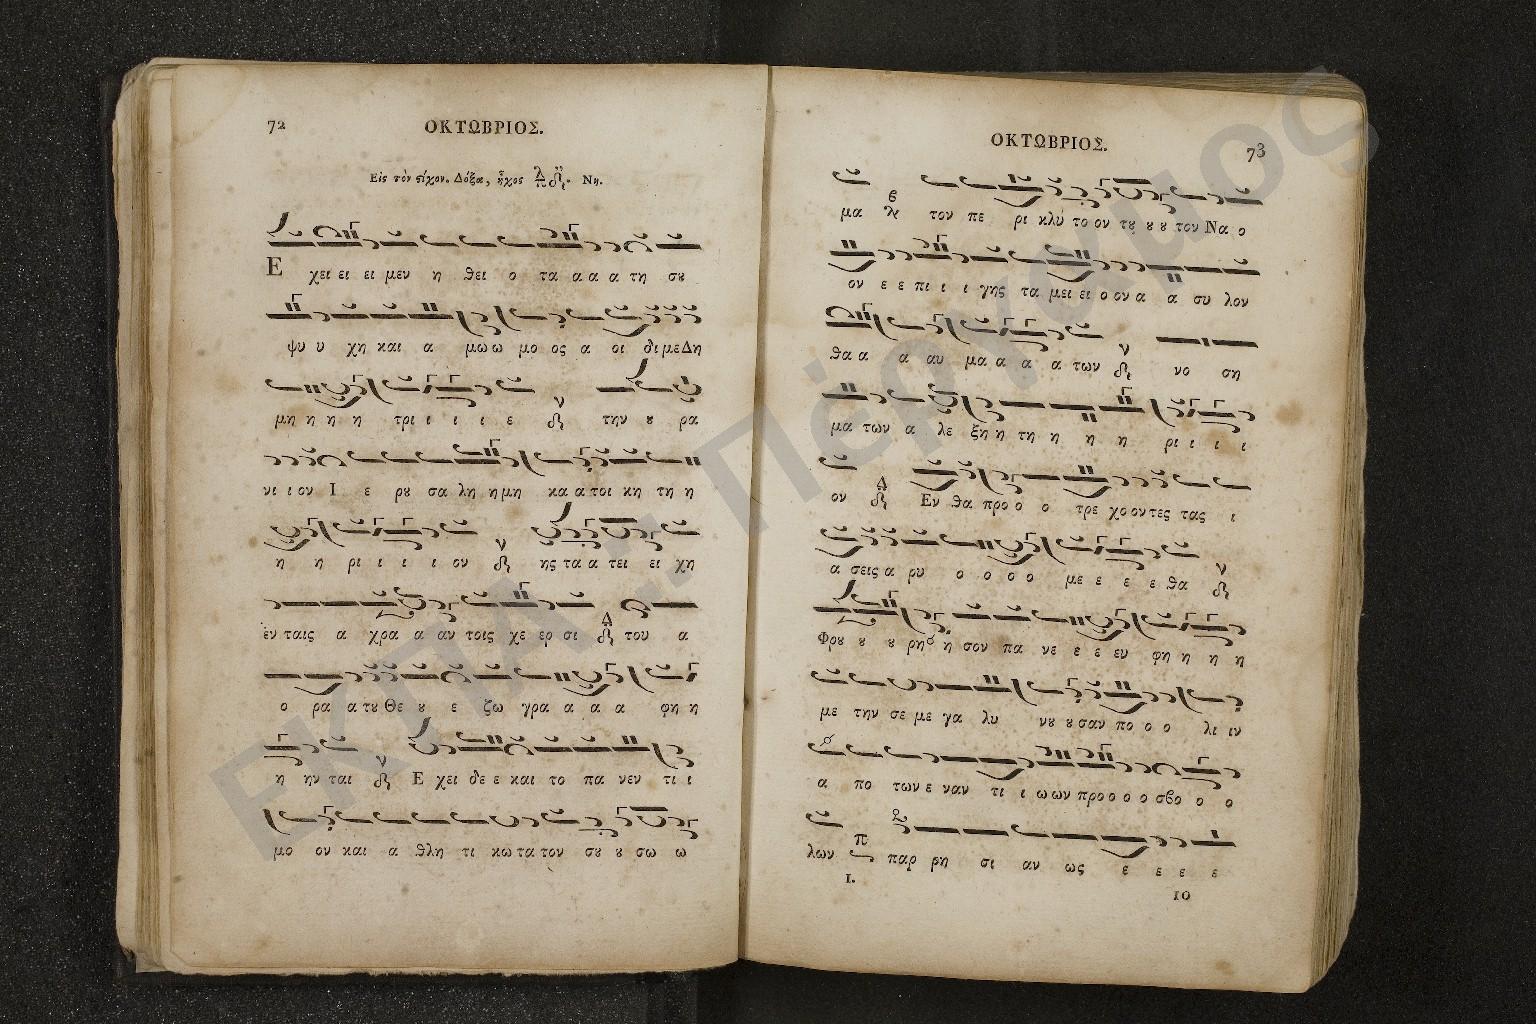 72
ΟΚΤΩΒΡΙΟΣ.
Εἰς τὸν ϛίχον. Δόξα, ἦχος Νη.
Ε χει ει ει μεν η θει ο τα α α α τη σȣ
ψυ υ χη και α μω ω μο ος α οι διμεΔη
μη η η η τρι ι ι ι ε την ȣ ρα
νι ι ον Ι ε ρȣ σα λη η μη κα α τοι κη τη η
η η ρι ι ι ι ον ης τα α τει ει χη
εν ταις α χρα α αν τοις χε ερ σι του α
ο ρα α τȣ Θε ȣ ε ζω γρα α α α φη η
η ην ται Ε χει δε ε και το πα νεν τι ι
μο ον και α θλη τι κω τα τον σȣ ȣ σω ω
ΟΚΤΩΒΡΙΟΣ.
73
μα τον πε ρι κλυ το ον τȣ ȣ ȣ τον Να ο
ον ε ε πι ι ι γης τα μει ει ο ον α α συ λον
θα α α αυ μα α α α των νο ση
μα των α λε ξη η τη η η η ρι ι ι ι
ον Εν θα προ ο ο τρε χο οντες τας ι
α σεις α ρυ ο ο ο ο με ε ε ε θα
Φρȣ ȣ ȣ ρη η σον πα νε ε ε εν φη η η η
με την σε με γα λυ νȣ ȣσαν πο ο ο λι ιν
α πο των ε ναν τι ι ω ων προ ο ο ο σβο ο ο
λων π παρ ρη σι αν ως ε ε ε ε
Ι.
10
ΕΚΠΑ : Πέργαμος